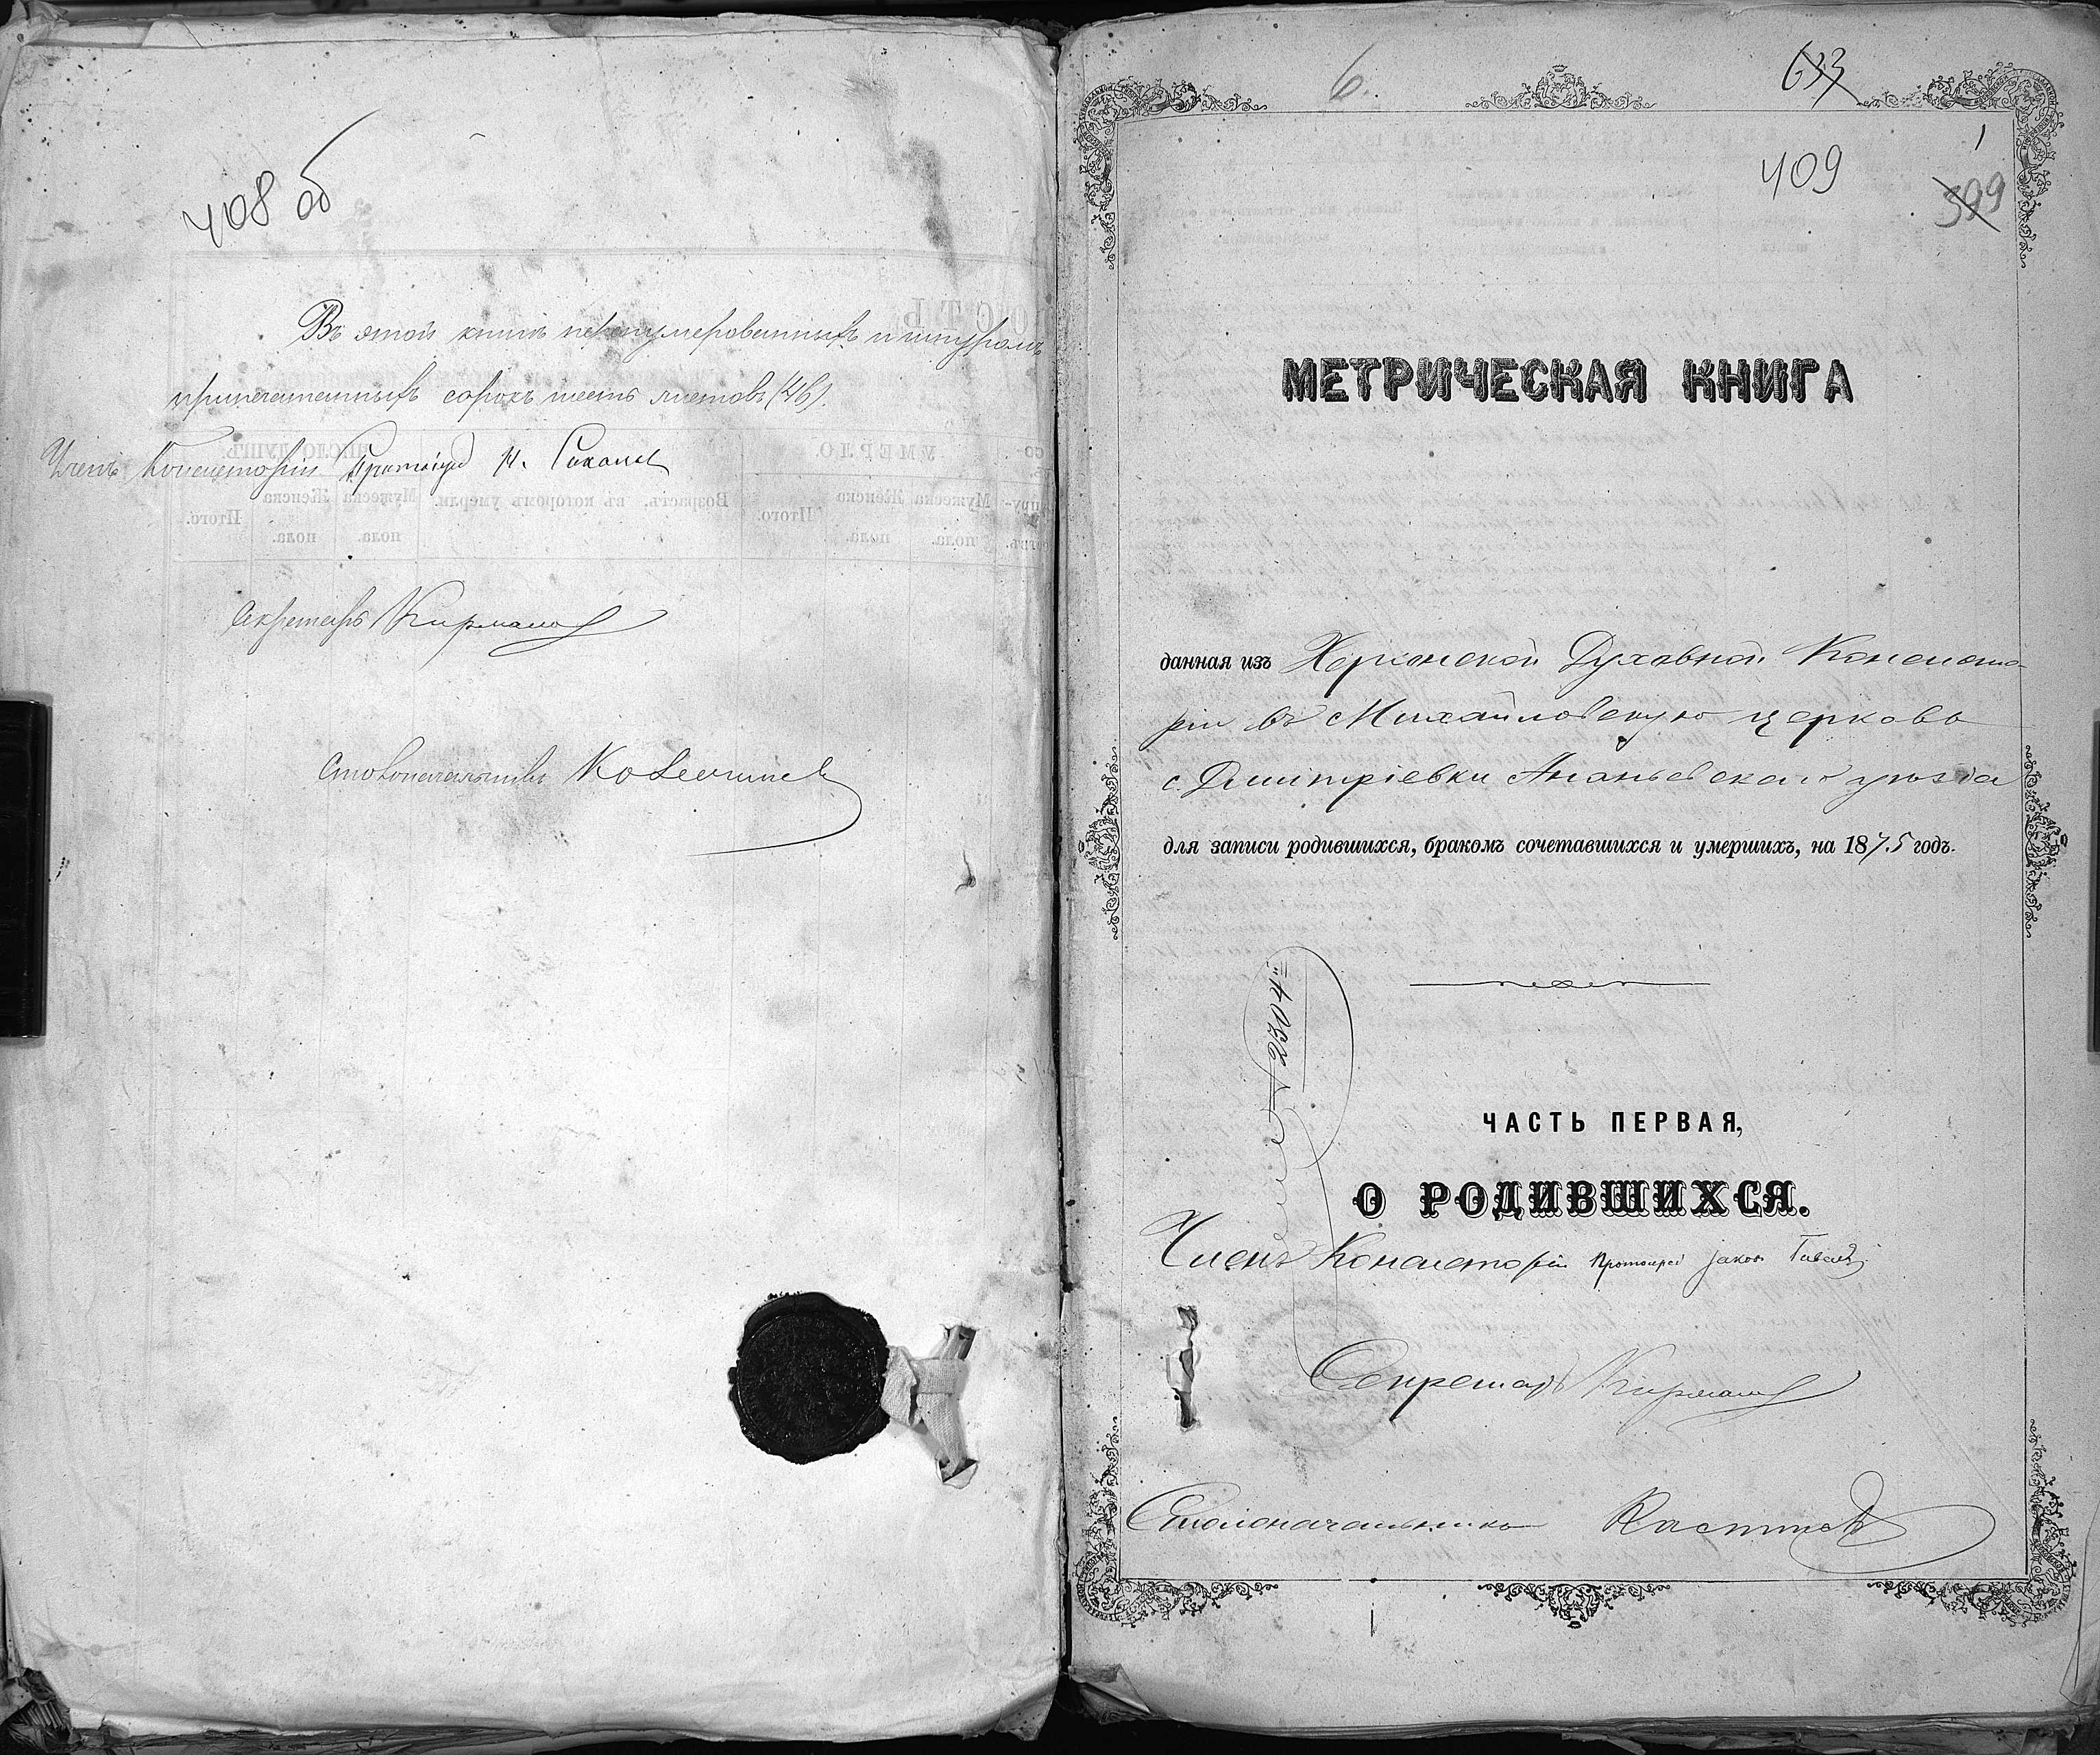 408 об
Въ этой книгѣ перенумерованныхъ и шнуромъ
припечатанныхъ сорокъ шесть листовъ (46).
Членъ Консисторіи Протоіерей Н. Соколов
Секретарь
Столоначальникъ
6.
633
1
409
399
МЕТРИЧЕСКАЯ КНИГА
данная изъ Херсонской Духовной Консисто-
ріи въ Михайловскую церковь
с. Дмитріевки Ананьевскаго уѣзда
для записи родившихся, бракомъ сочетавшихся и умершихъ, на 1875 годъ.
ЧАСТЬ ПЕРВАЯ,
О РОДИВШИХСЯ.
Членъ Консисторіи Протоіерей Іаков
Секретарь
Столоначальникъ